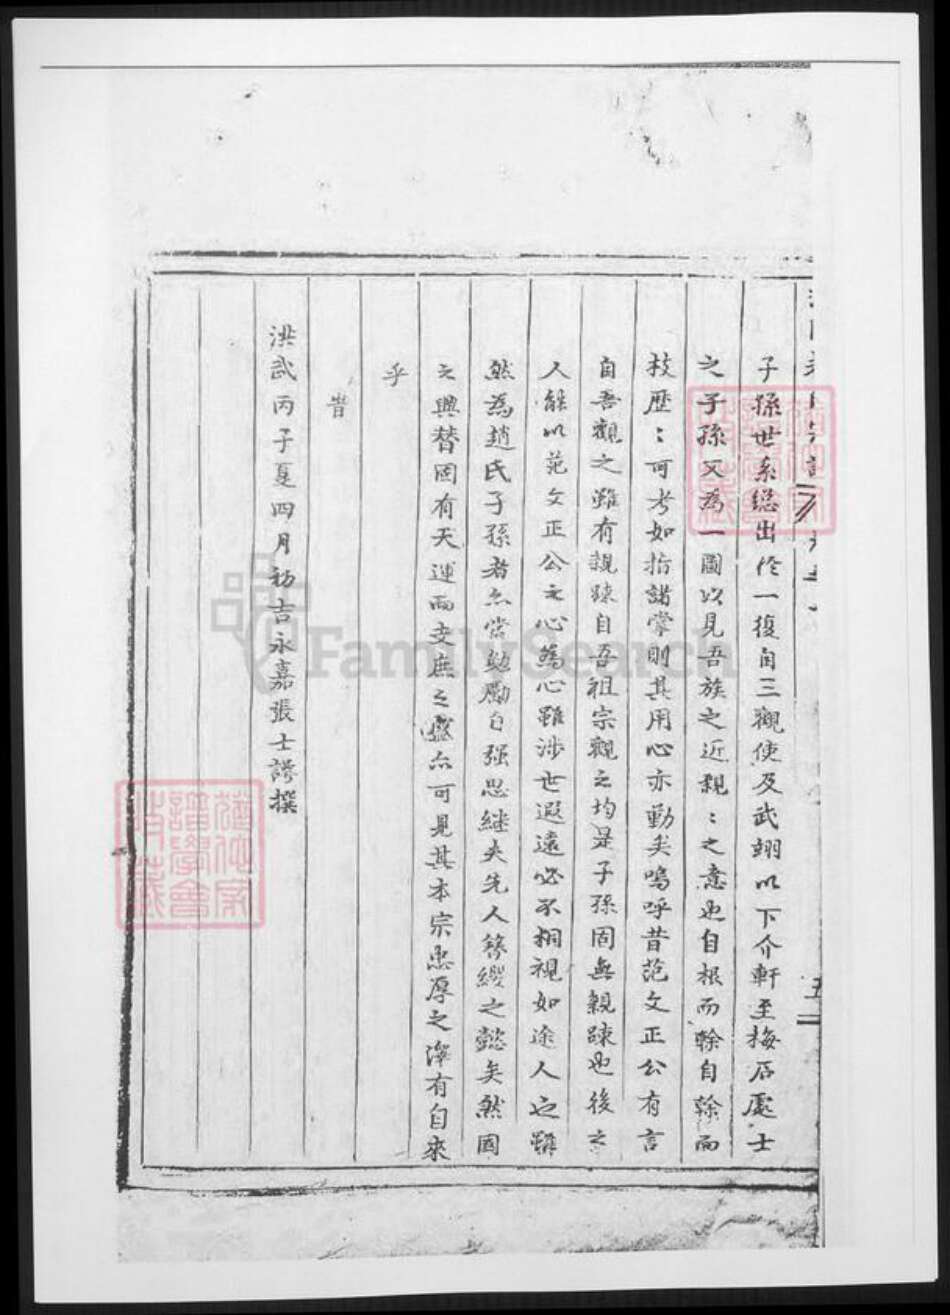 子孫世系總出於一復自三觀使及武翊以下介軒至梅石處士
之子孫又為一圖以見吾族之近親〻之意也自根而榦自榦而
枝歷〻可考如指諸掌則其用心亦勤矣嗚呼昔范文正公有言
自吾觀之雖有親踈自吾祖宗觀之均是子孫固無親踈也後之
人能以范文正公之心為心雖涉世遐遠必不相視如途人也雖
然為趙氏子孫者亦當勉勵自强思継夫先人簪纓之懿矣然國
之興替固有天運而支庶之盛亦可見其本宗忠厚之澤有自來
乎
旹
洪武丙子夏四月初吉永嘉張士謗撰
五
FamilySearch